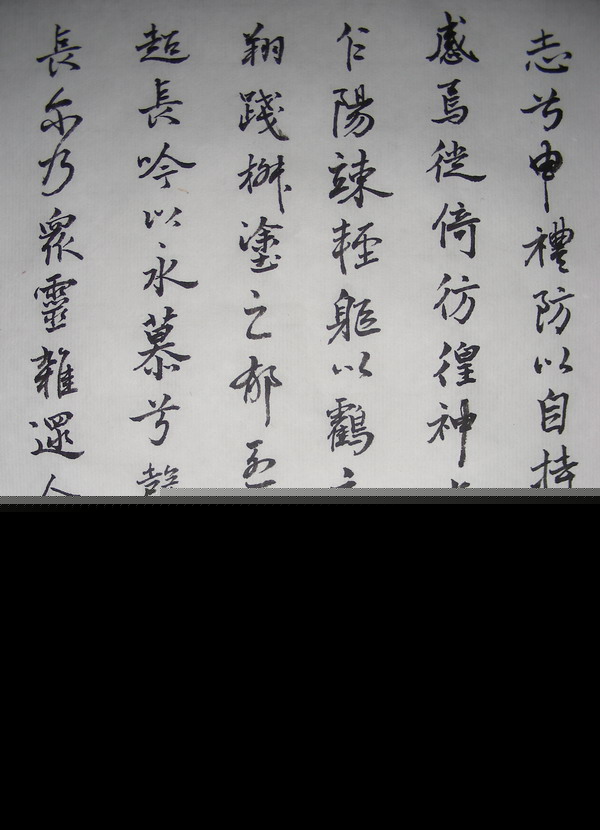 志兮申禮防以自持
感焉徙倚彷徨神
乍陽竦輕軀以鶴
翔踐椒塗之郁烈
超長吟以永慕兮聲
長尔乃衆靈雜遝